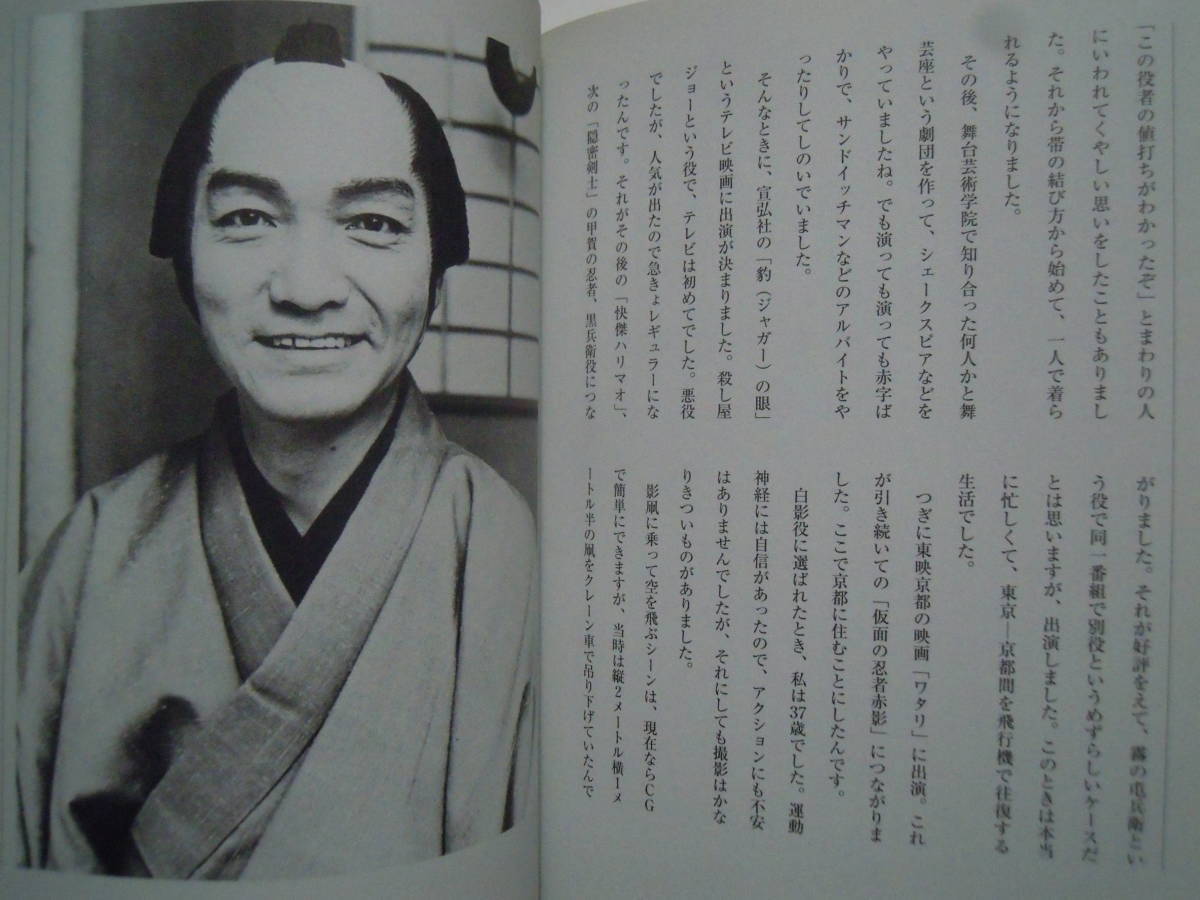 「この役者の値打ちがわかったぞ」とまわりの人
にいわれてくやしい思いをしたこともありまし
た。それから帯の結び方から始めて、一人で着ら
れるようになりました。
その後、舞台芸術学院で知り合った何人かと舞
芸座という劇団を作って、シェークスピアなどを
やっていましたね。でも演っても演っても赤字ば
かりで、サンドイッチマンなどのアルバイトをや
ったりしてしのいでいました。
そんなときに、宣弘社の「豹（ジャガー）の眼」
というテレビ映画に出演が決まりました。殺し屋
ジョーという役で、テレビは初めてでした。悪役
でしたが、人気が出たので急きょレギュラーにな
ったんです。それがその後の「快傑ハリマオ」、
次の「隠密剣士」の甲賀の忍者、黒兵衛役につな
がりました。それが好評をえて、霧の屯兵衛とい
う役で同一番組で別役というめずらしいケースだ
とは思いますが、出演しました。このときは本当
に忙しくて、東京―京都間を飛行機で往復する
生活でした。
つぎに東映京都の映画「ワタリ」に出演。これ
が引き続いての「仮面の忍者赤影」につながりま
した。ここで京都に住むことにしたんです。
白影役に選ばれたとき、私は37歳でした。運動
神経には自信があったので、アクションにも不安
はありませんでしたが、それにしても撮影はかな
りきついものがありました。
影凧に乗って空を飛ぶシーンは、現在ならCG
で簡単にできますが、当時は縦2メートル横1メ
ートル半の凧をクレーン車で吊り下げていたんで